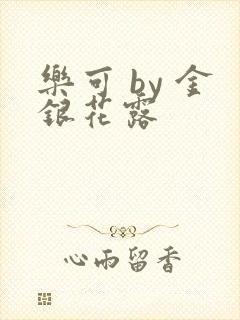 樂可 by 金
銀花露
心雨留香